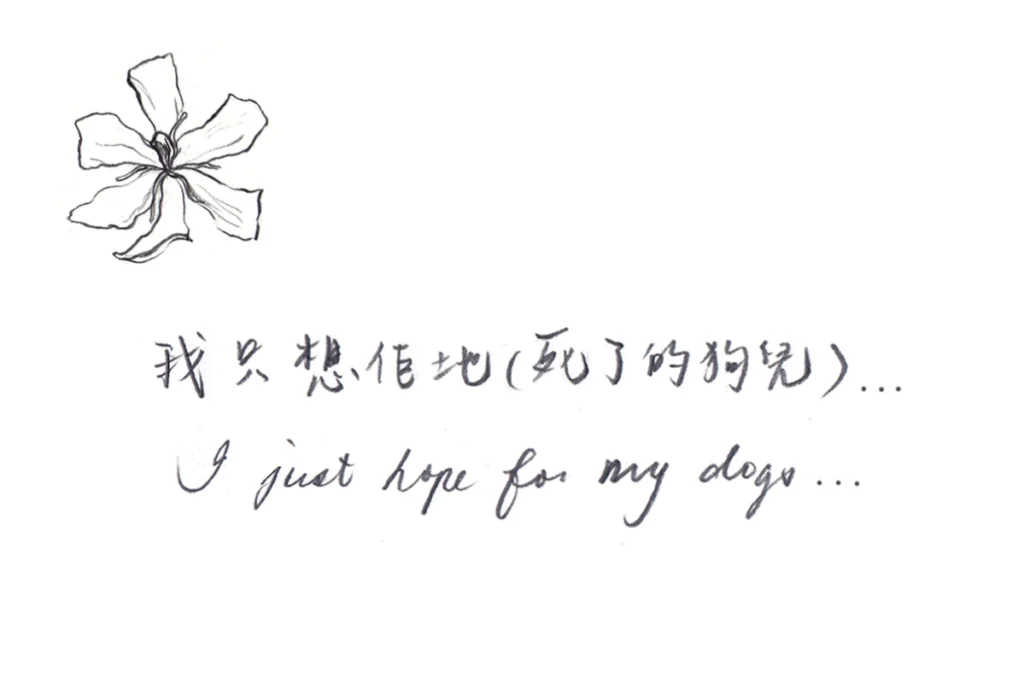 我只想佢地(死了的狗兒)...
I just hope for my dogs...